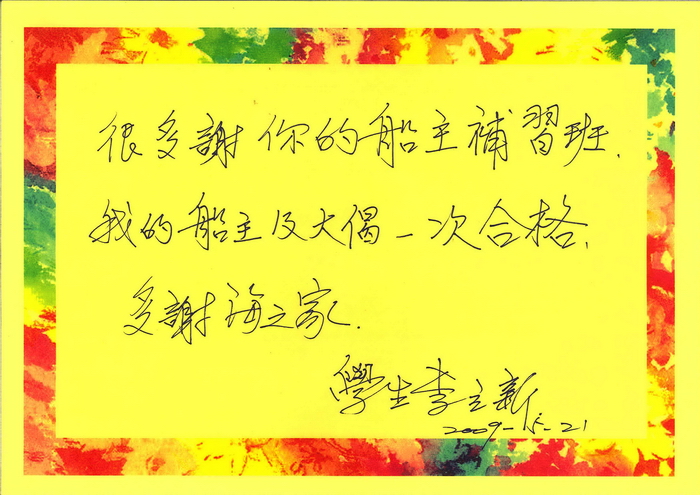 很多謝你的船主補習班.
我的船主及大偈一次合格.
多謝海之家.
學生李立新
2009-5-21